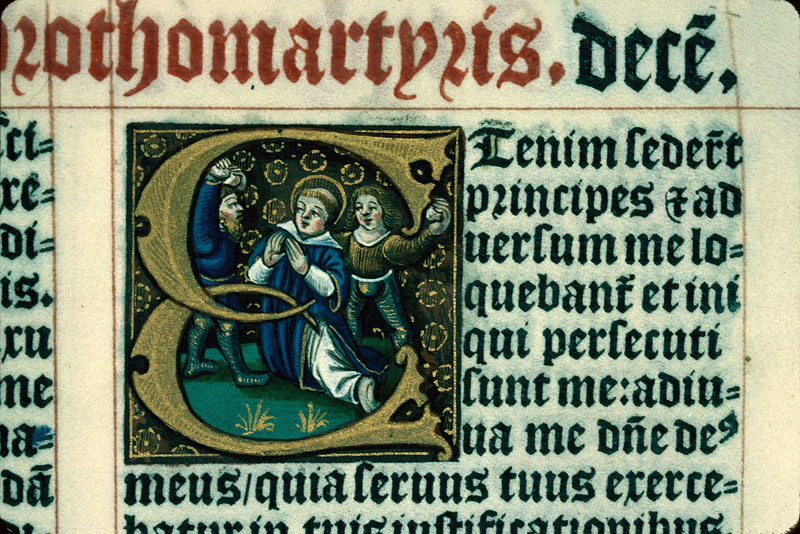 rothomartyris. decē.
ci-
xē-
di-
is.
xu
me
na-
dā
E
Tenim seder̄t
principes & ad
uersum me lo-
quebant᷑ et ini
qui persecuti
sunt me: adiu-
ua me dn̄e deꝰ
meus/ quia seruus tuus exerce-
batur in tuis iustificationibus.